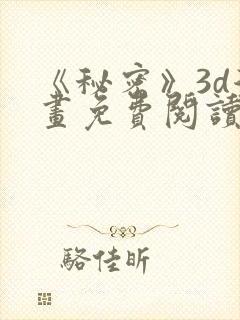 《秘密》3d
畫免費閱讀
駱佳昕